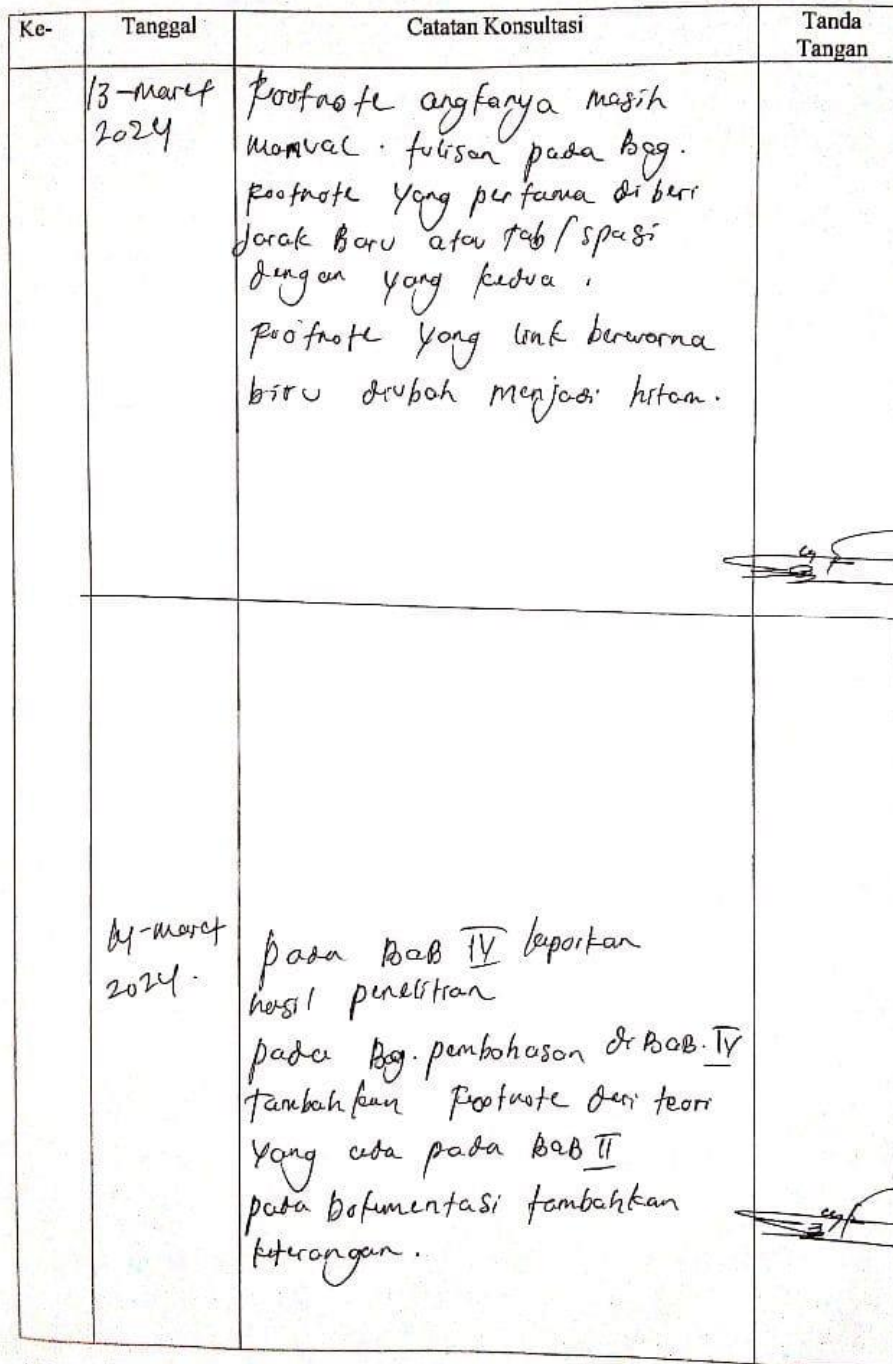 Ke-
Tanggal
Catatan Konsultasi
Tanda
Tangan
13-Maret
2024
Footnote angkanya masih
manual. tulisan pada Bag.
footnote yang pertama di beri
jarak Baru atau tab/spasi
dengan yang kedua.
Footnote yang link berwarna
biru diubah menjadi hitam.
14-Maret
2024.
pada BAB IV laporkan
hasil penelitian
pada Bag. pembahasan di BAB. IV
tambahkan Footnote dari teori
yang ada pada BAB II
pada Dokumentasi tambahkan
keterangan.